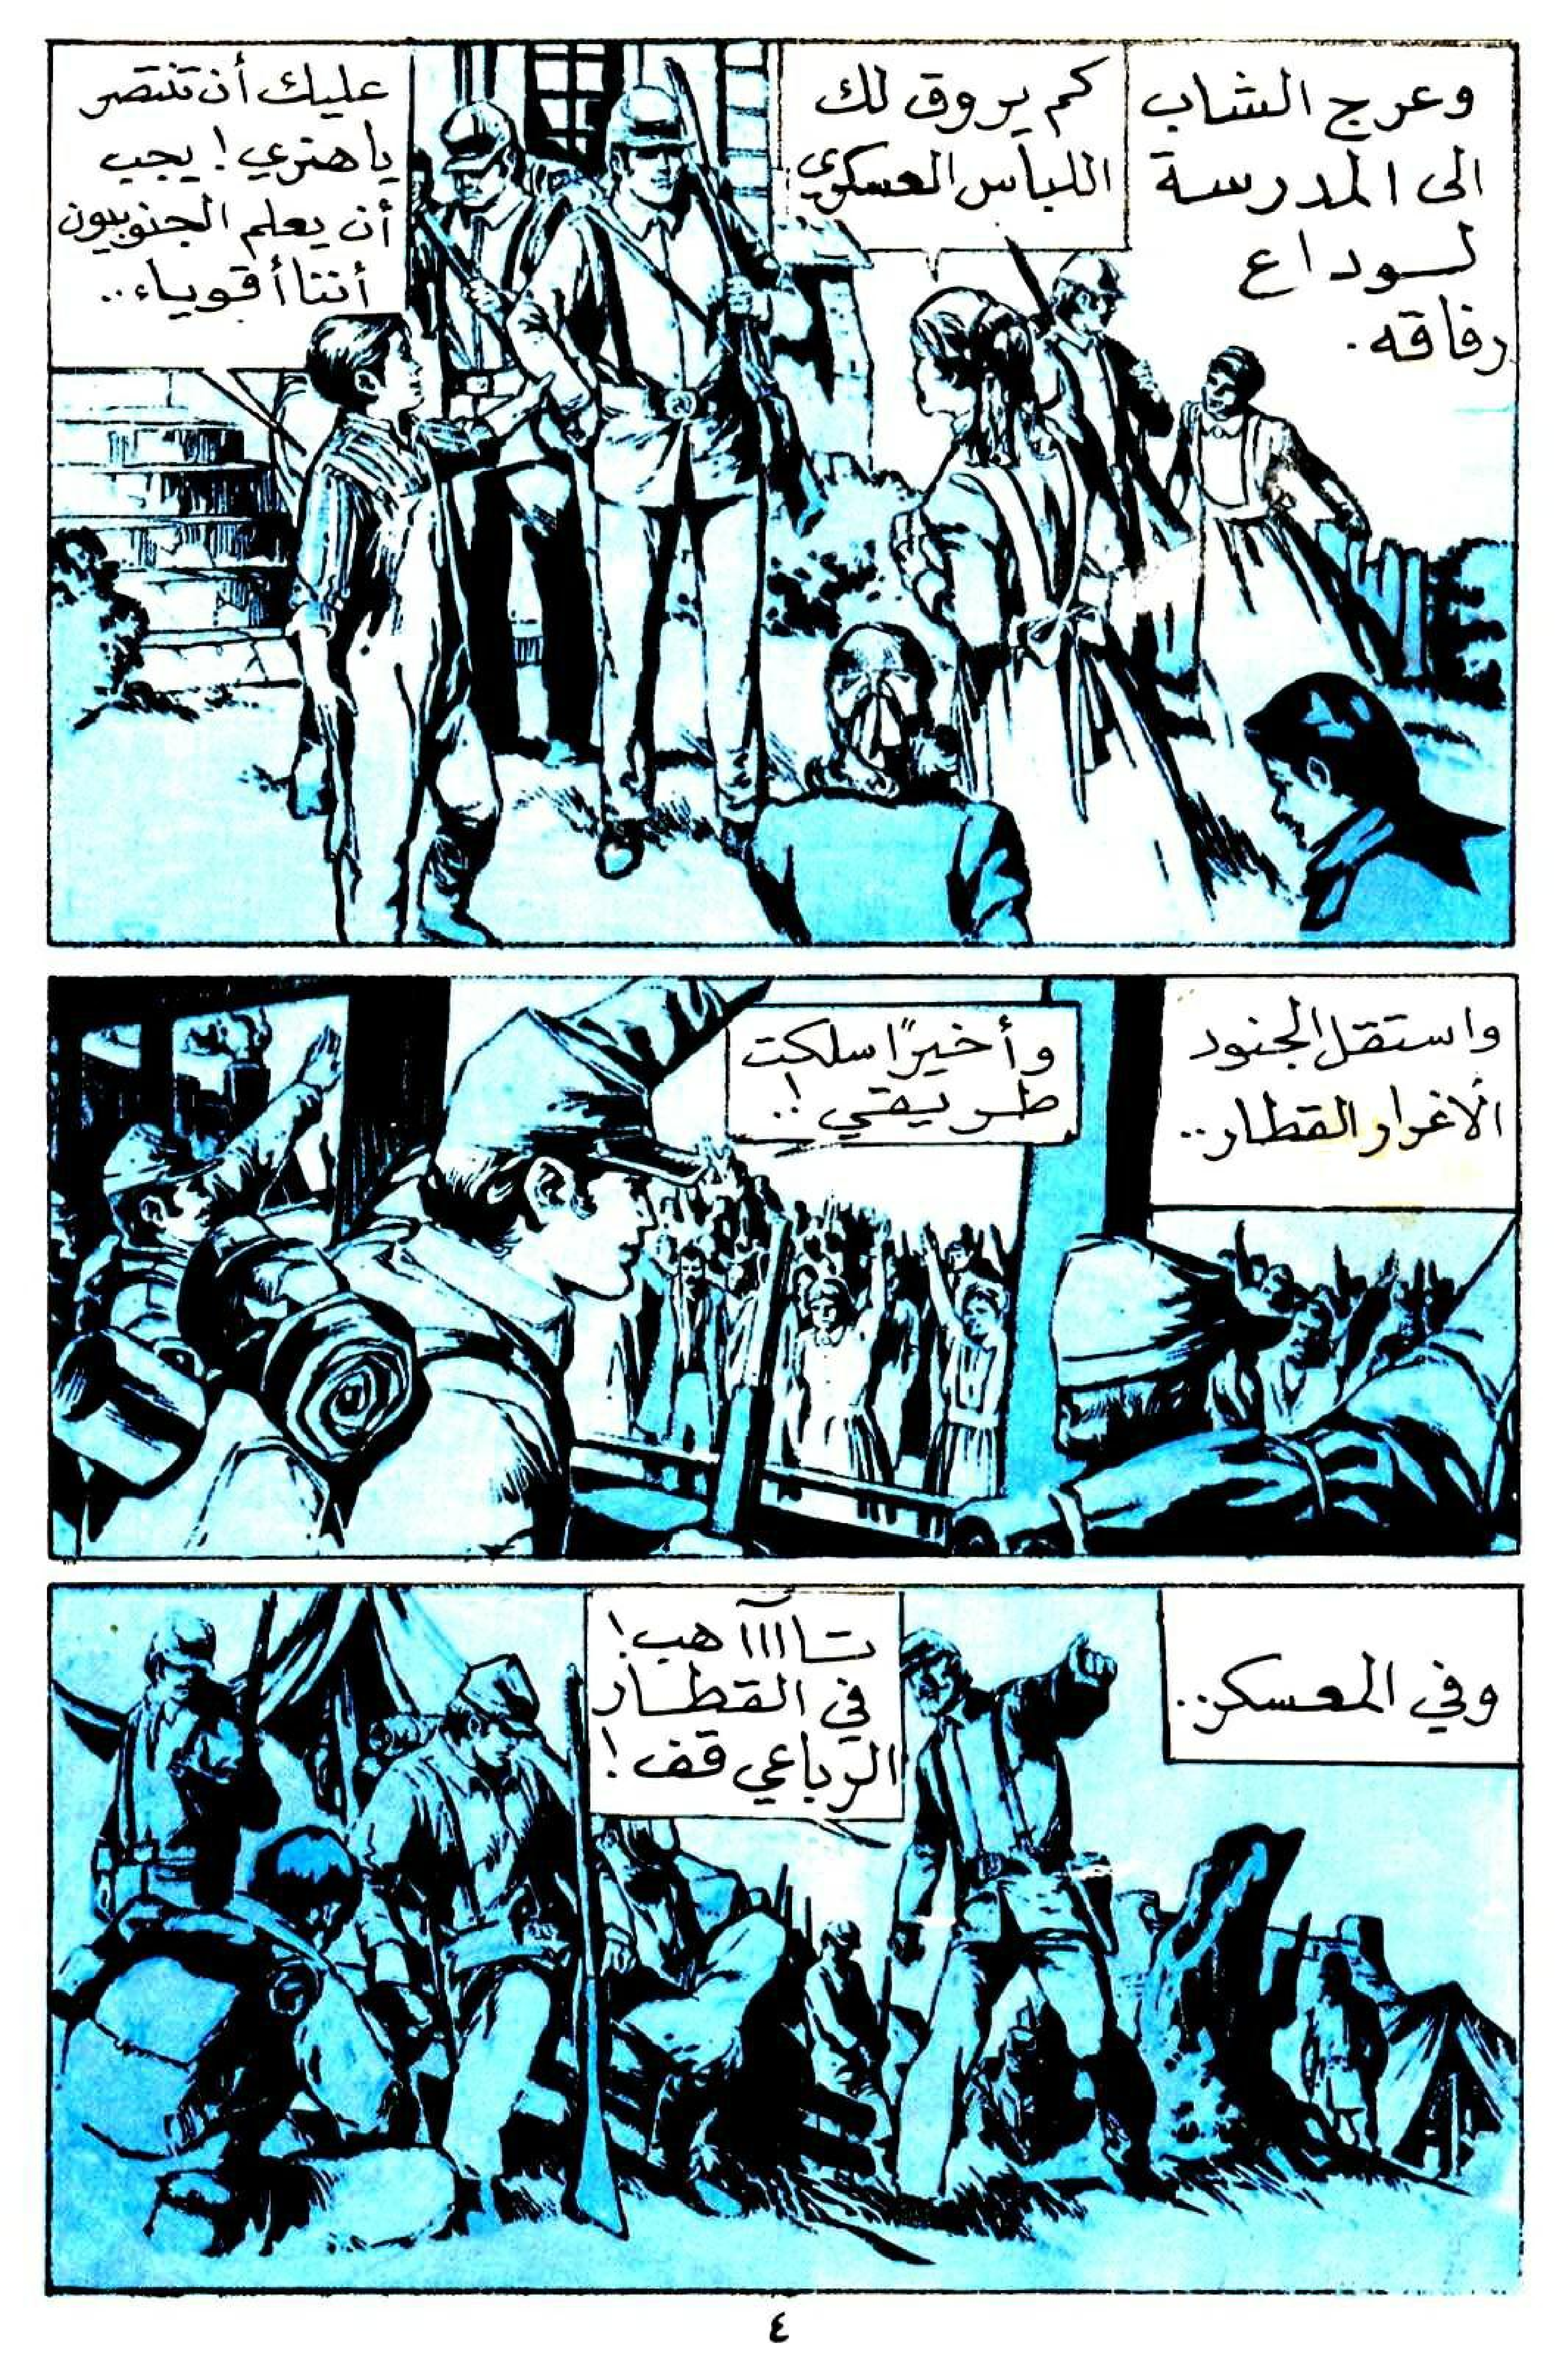 وعرج الشاب
الى المدرسة
لــوداع
رفاقه.
كم يروق لك
اللباس العسكري
عليك أن تنتصر
يا هنري! يجب
أن يعلم الجنوبيون
أننا أقوياء..
واستقل الجنود
الأغرار القطار..
وأخيرًا سلكت
طريقي!..
وفي المعسكر..
تـاااآهب!
في القطــار
الرباعي قف!
٤